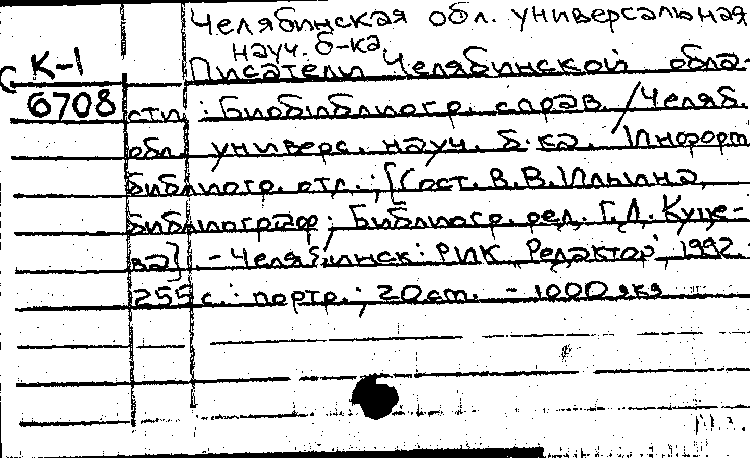 Челябинская обл. универсальная
науч. б-ка
К-1
Писатели Челябинской обла-
6708
сти: Биобиблиогр. справ. / Челяб.
обл. универс. науч. б-ка. Информ
библиогр. отл.; [Сост. В.В. Ильина,
библиограф; Библиогр. ред. Г.Л. Куце-
ва] - Челябинск: РИК Редактор, 1992.
255 с.: портр.; 20 ст. - 1000 экз